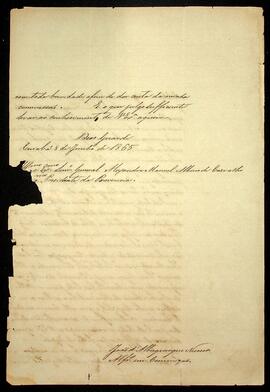 com toda brevidade afim de dar conta da minha
commissaõ. É o que julgo sufficiente
levar ao conhecimento de V. Exª
Deos Guarde
Cuiabá 8 de Junho de 1865
Illmo Exmo Snr General Alexandre Manoel Albino de Carvalho
Presidente da Provincia
José d'Albuquerque Nunes
Alfs em Commissaõ